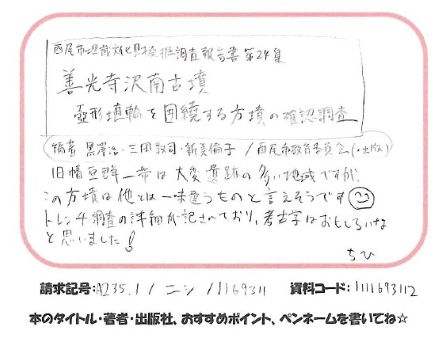 西尾市埋蔵文化財発掘調査報告書第24集
善光寺沢南古墳
壺形埴輪を囲繞する方墳の確認調査
編著 黒澤浩・三田敦司・新美倫子 / 西尾市教育委員会(・出版)
旧幡豆郡一帯は大変遺跡の多い地域ですが、
この方墳は他とは一味違うものと言えそうです
トレンチ調査の詳細が記されており、考古学はおもしろいな
と思いました!
ちひ
請求記号:A235.1 / ニシ / 資料コード:1111693112
本のタイトル・著者・出版社、おすすめポイント、ペンネームを書いてね☆